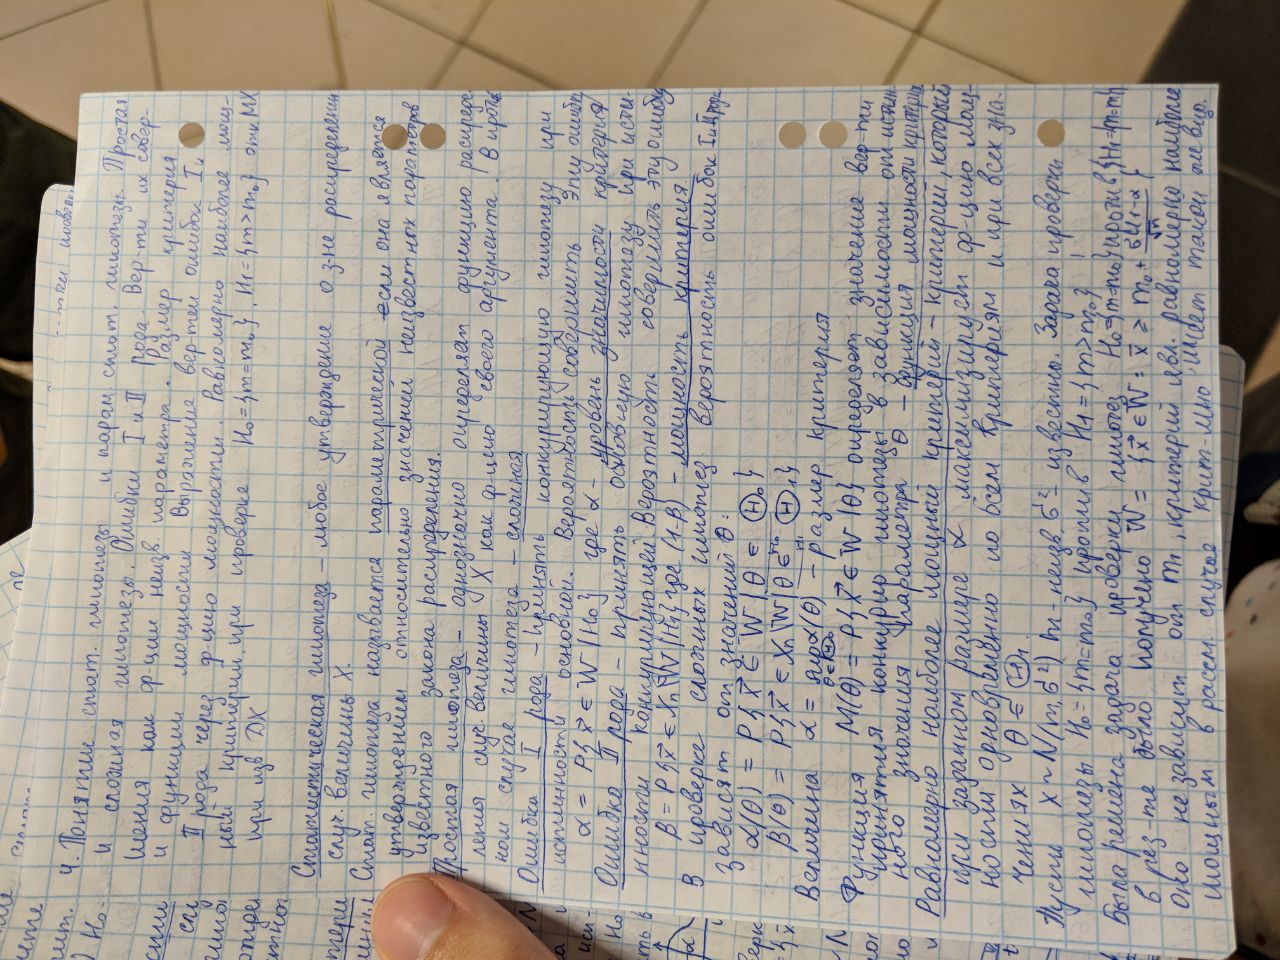 4. Понятие стат. гипотезы и парам. стат. гипотезы. Простая
и сложная гипотезы. Ошибки I и II рода. Вер-ти их совер-
шения как ф-ции неизв. параметра. Размер критерия
и функции мощности. Выражение вер-тей ошибок I и
II рода через ф-цию мощности. Равномерно наиболее мощ-
ный критерий при проверке H₀={m=m₀}, H₁={m>m₀} отн. MX
при изв. DX
Статистическая гипотеза – любое утверждение о з-не распределения
случ. величины X.
Стат. гипотеза называется параметрической если она является
утверждением относительно значений неизвестных параметров
известного закона распределения.
Простая гипотеза – однозначно определяет функцию распреде-
ления случ. величины X как ф-цию своего аргумента. В против
ном случае гипотеза – сложная
Ошибка I рода – принять конкурирующую гипотезу при
истинности основной. Вероятность совершить эту ошибк
α = P{x⃗ ∈ W | H₀} где α – уровень значимости критерия
Ошибка II рода – принять основную гипотезу при исти-
нности конкурирующей. Вероятность совершить эту ошибку
β = P{x⃗ ∈ Xₙ\W | H₁} где (1-β) – мощность критерия
В проверке сложных гипотез вероятность ошибок I и II рода
зависят от значений θ:
α(θ) = P{x⃗ ∈ W | θ ∈ Ⓗ₀}
β(θ) = P{x⃗ ∈ Xₙ\W | θ ∈ Ⓗ₁}
Величина α = sup α(θ) – размер критерия
θ∈Ⓗ₀
Функция M(θ) = P{x⃗ ∈ W | θ} определяет значение вер-ти
принятия конкурир гипотезы в зависимости от истин-
ного значения параметра θ – функция мощности критерия
Равномерно наиболее мощный критерий – критерий, который
при заданном размере α максимизирует ф-цию мощ-
ности одновременно по всем критериям и при всех зна-
чениях θ ∈ Ⓗ₁.
Пусть X ~ N(m, σ²) m – неизв, σ² – известны. Задача проверки
гипотезы H₀={m=m₀} против H₁={m>m₀}
Была решена задача проверки гипотез H₀={m=m₀} против {H₁={m=m₁}
в рез-те было получено W = {x⃗ ∈ W : x̄ ≥ m₀ + σU₁₋α/√n}
оно не зависит от m₁, критерий явл. равномерно наиболее
мощным в рассм. случае крит. мно имеет такой же вид.